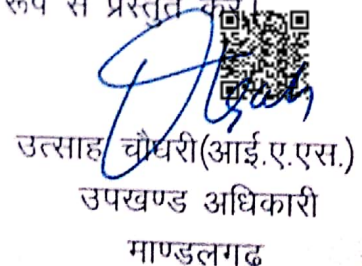 रूप से प्रस्तुत करें।
उत्साह चौधरी(आई.ए.एस.)
उपखण्ड अधिकारी
माण्डलगढ़